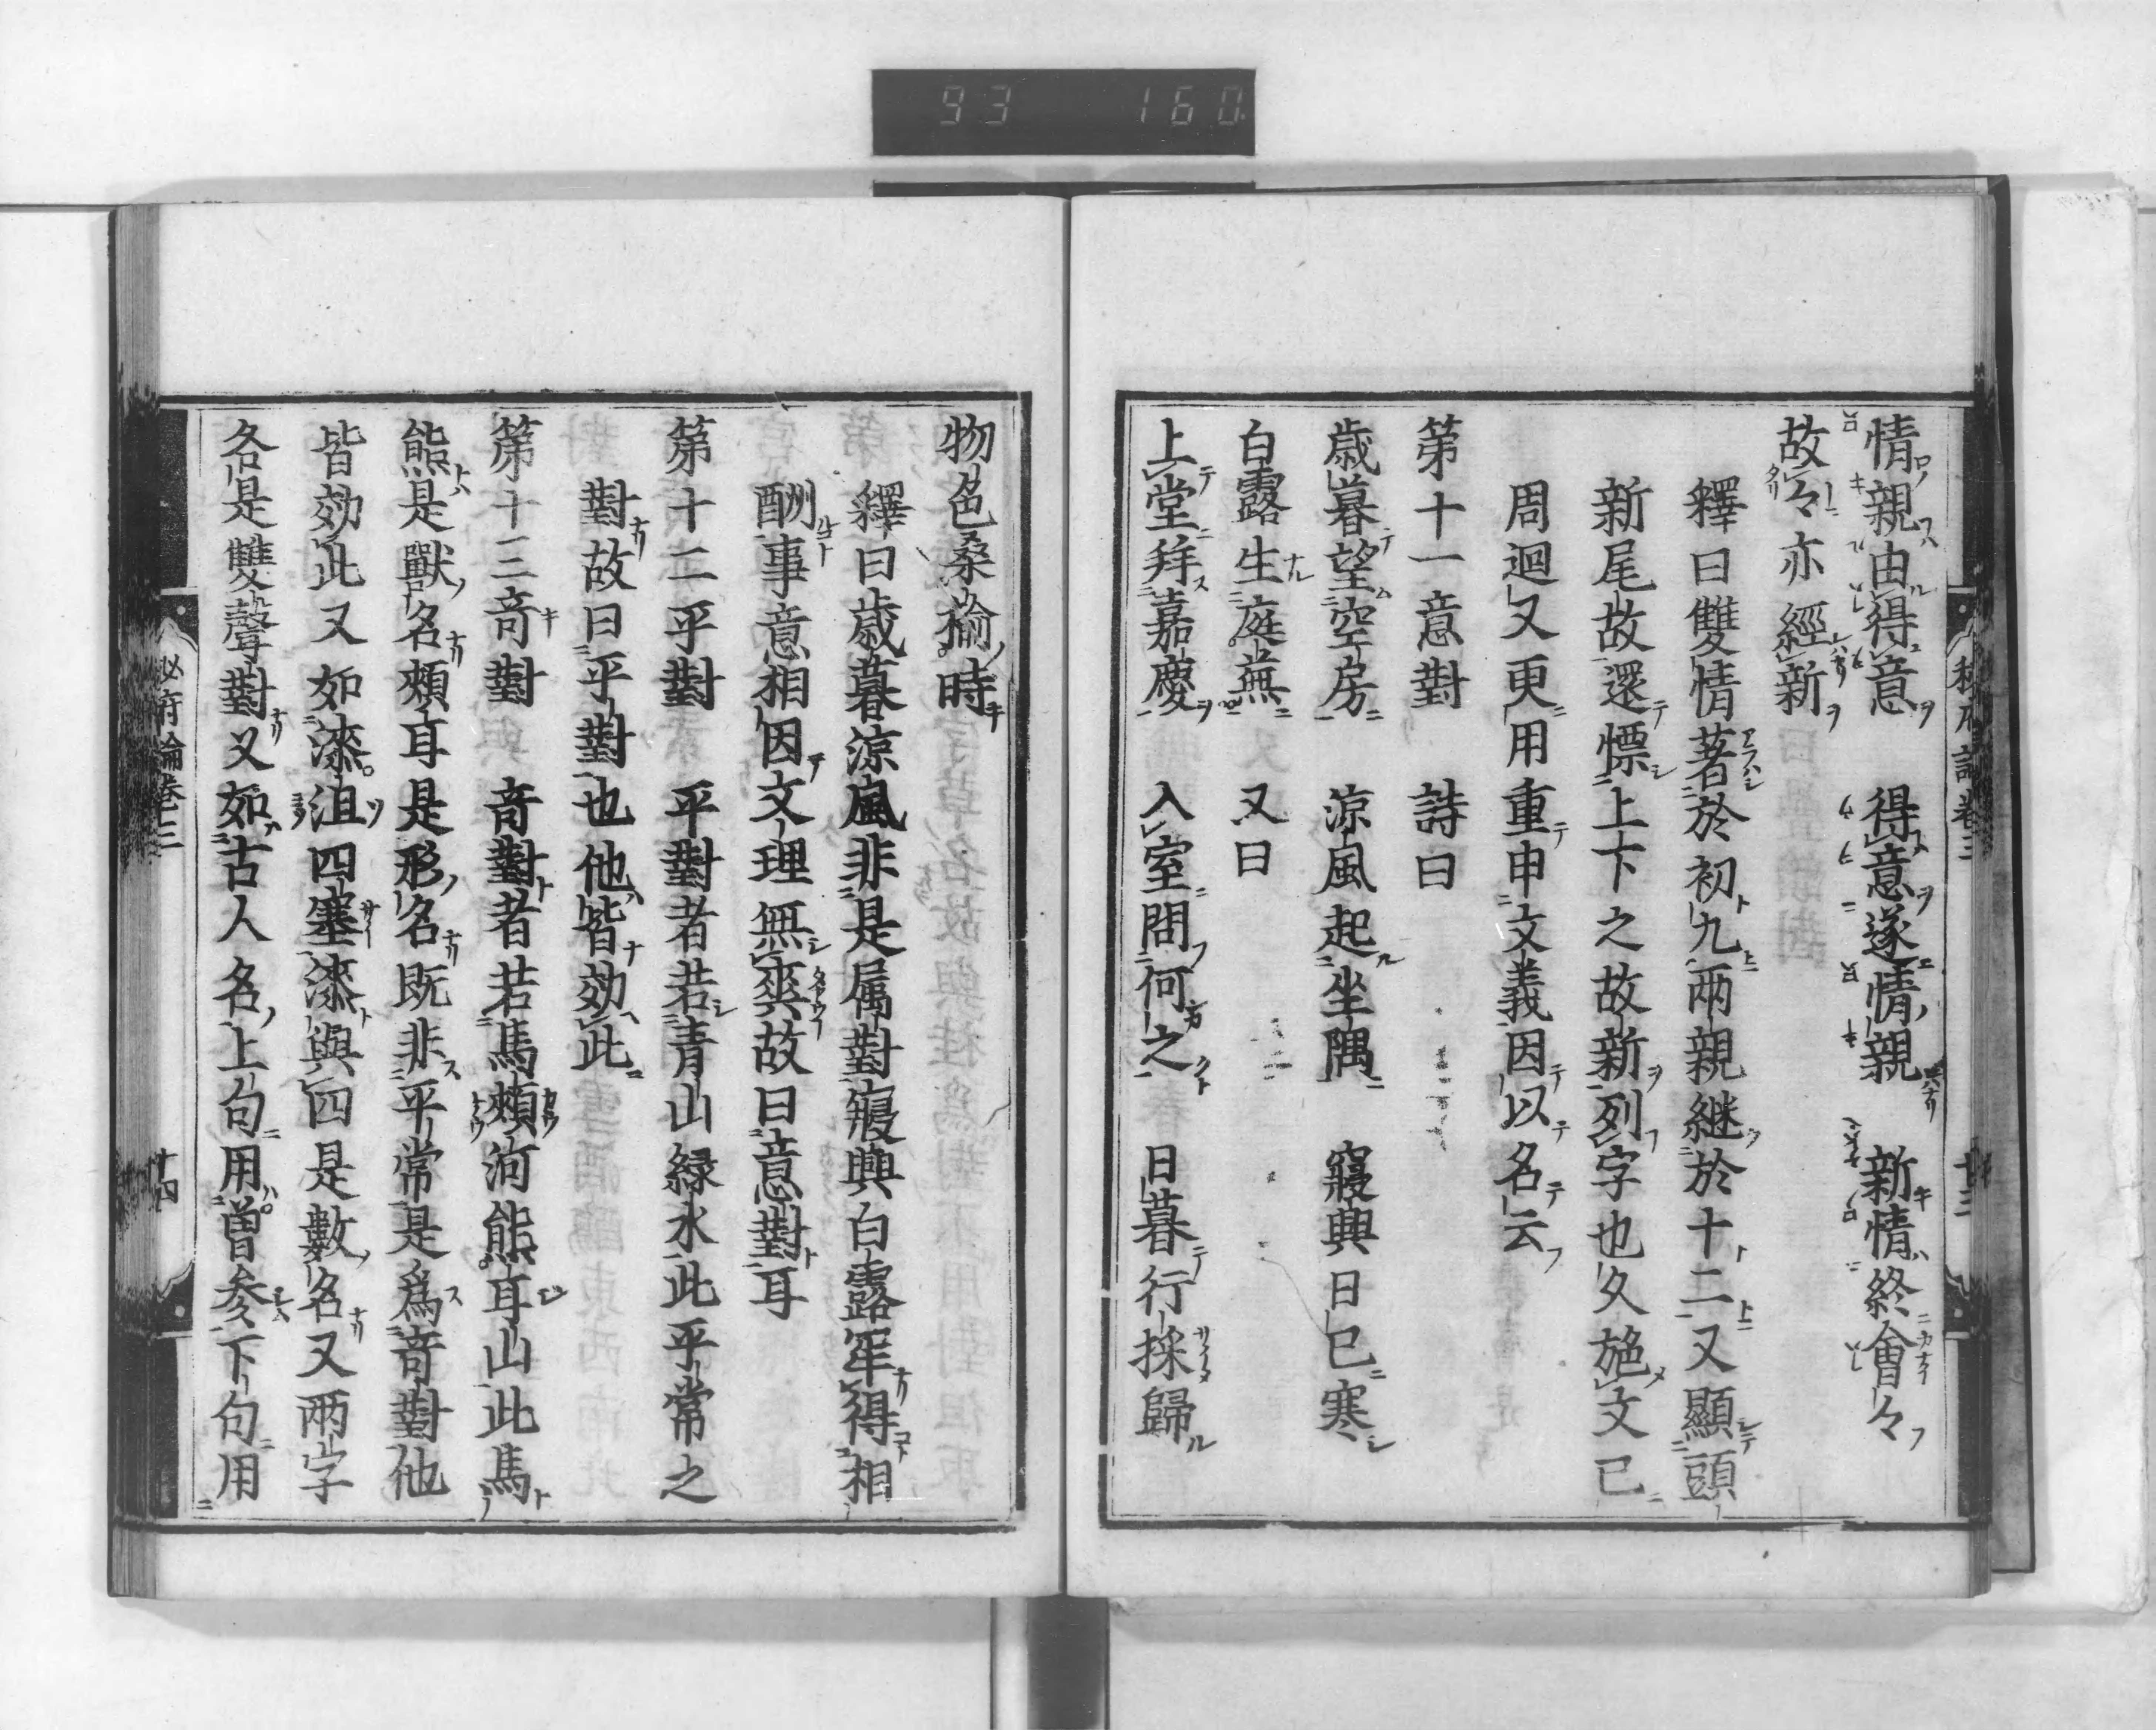 93 160
情親由得意 得意遂情親 新情終會々
故々亦經新
釋曰雙情著於初九兩親継於十二又顯頭
新尾故還慓上下之故新列字也久施文已
周迴又更用重申文義因以名云
第十一意對 詩曰
歳暮望空房 涼風起坐隅 寢興日已寒
白露生庭蕪 又曰
上堂拜嘉慶 入室問何之 日暮行採歸
物色桑揄時
釋曰歳暮涼風非是属對寢興白露罕得相
酬事意相因文理無爽故曰意對耳
第十二平對 平對者若青山緑水此平常之
對故曰平對也他皆効此
第十三竒對 竒對者若馬頰河熊耳山此馬
熊是獸名頰耳是形名既非平常是爲竒對他
皆効此又如漆沮四塞漆與四是數名又兩字
各是雙聲對又如古人名上句用曽參下句用
必府論卷三 十四